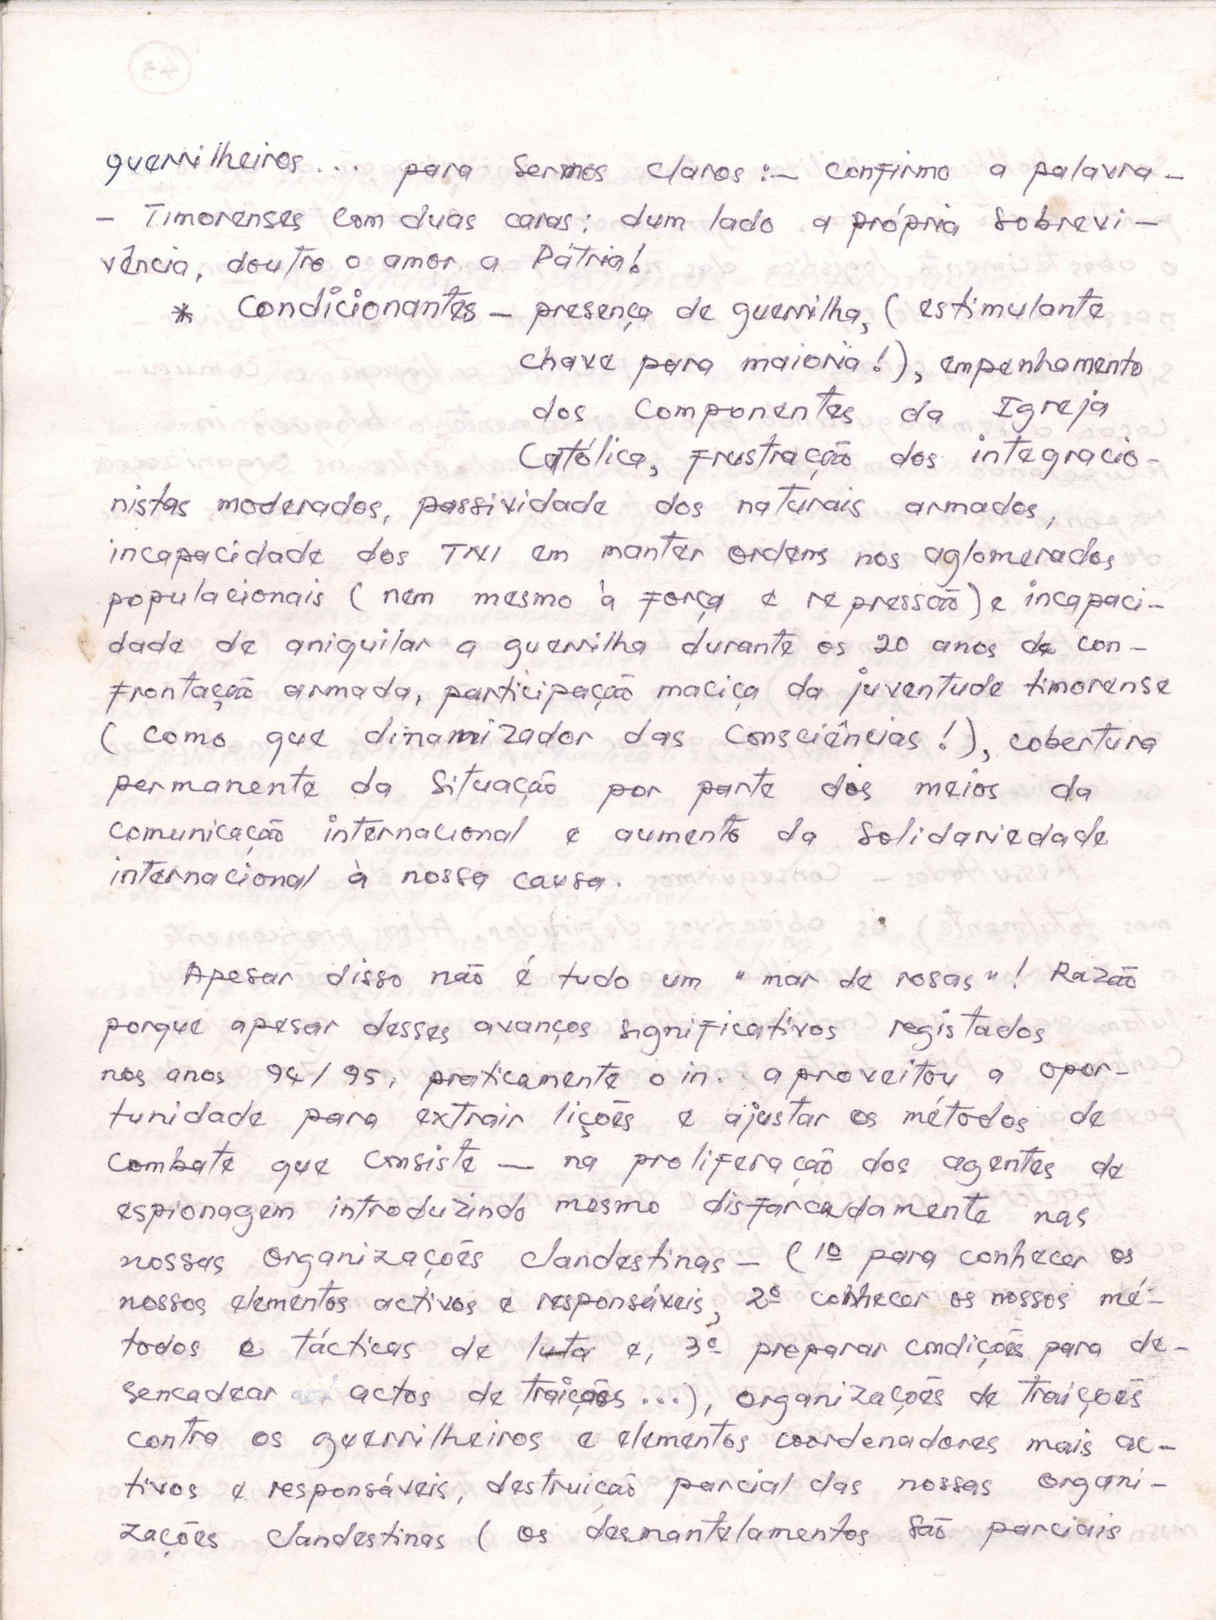 guerrilheiros... para sermos claros:— confirmo a palavra —
— Timorenses com duas caras: dum lado a própria sobrevi-
vência, doutro o amor a Pátria!
* Condicionantes — presença de guerrilha, (estimulante
chave para maioria!), empenhamento
dos componentes da Igreja
Católica, frustração dos integracio-
nistas moderados, passividade dos naturais armados,
incapacidade dos TNI em manter ordens nos aglomerados
populacionais (nem mesmo à força e repressão) e incapaci-
dade de aniquilar a guerrilha durante os 20 anos de con-
frontação armada, participação maciça da juventude timorense
(como que dinamizador das consciências!), cobertura
permanente da situação por parte dos meios da
comunicação internacional e aumento da solidariedade
internacional à nossa causa.
Apesar disso não é tudo um "mar de rosas"! Razão
porque apesar desses avanços significativos registados
nos anos 94/95, praticamente o in.. aproveitou a opor-
tunidade para extrair lições e ajustar os métodos de
combate que consiste — na proliferação dos agentes de
espionagem introduzindo mesmo disfarcadamente nas
nossas organizações clandestinas — (1º para conhecer os
nossos elementos activos e responsáveis, 2º conhecer os nossos mé-
todos e tácticas de luta e, 3º preparar condições para de-
sencadear actos de traições...), organizações de traições
contra os guerrilheiros e elementos coordenadores mais ac-
tivos e responsáveis, destruição parcial das nossas organi-
zações clandestinas (os desmantelamentos são parciais